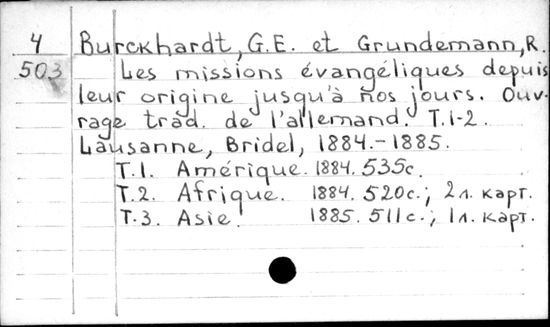 4 Burckhardt, G.E. et Grundemann, R.
503 Les missions évangéliques depuis
leur origine jusqu'à nos jours. Ouv-
rage trad. de l'allemand. T.1-2.
Lausanne, Bridel, 1884.-1885.
T.1. Amérique. 1884. 535c.
T.2. Afrique. 1884. 520c.; 2л. карт.
T.3. Asie. 1885. 511c.; 1л. карт.